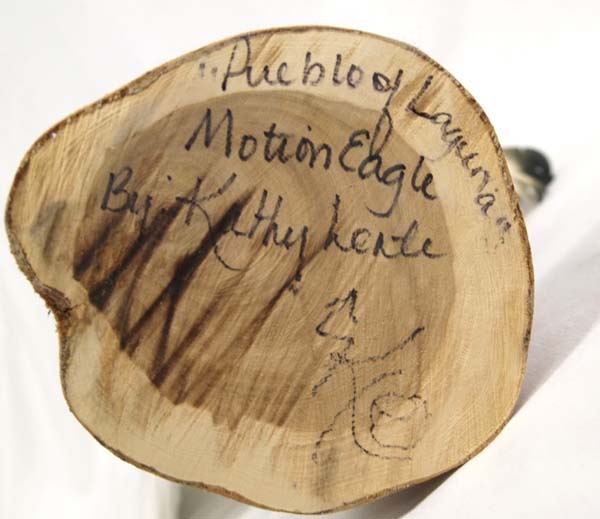 "Pueblo of Laguna"
Motion Eagle
By: Kathy Lente